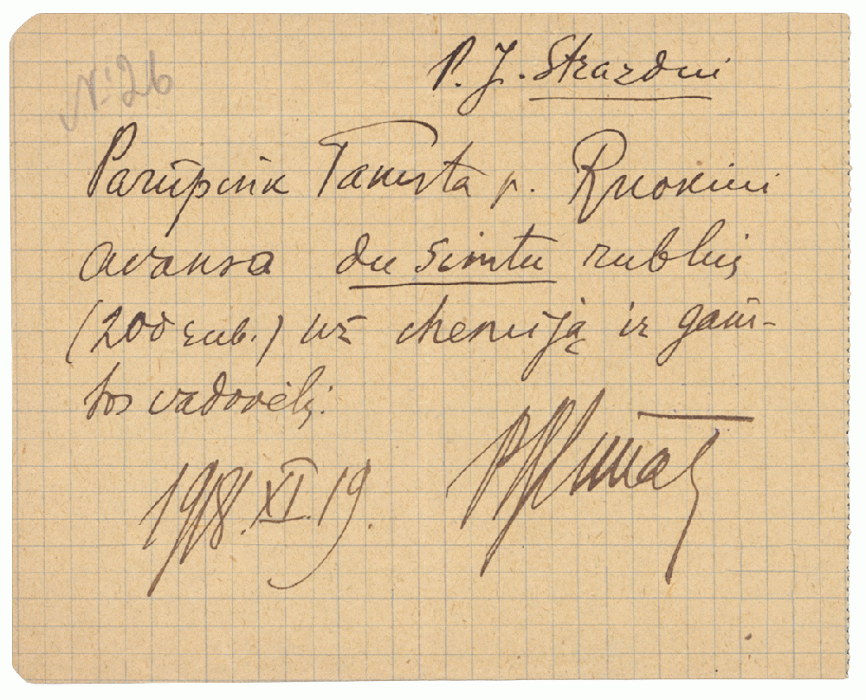 N: 26
P. J. Strazdui
Parūpink Tamsta p. Ruokiui
avansa du šimtu rublių
(200 rub.) už chemiją ir gam-
tos vadovėlį.
1918.XI.19.